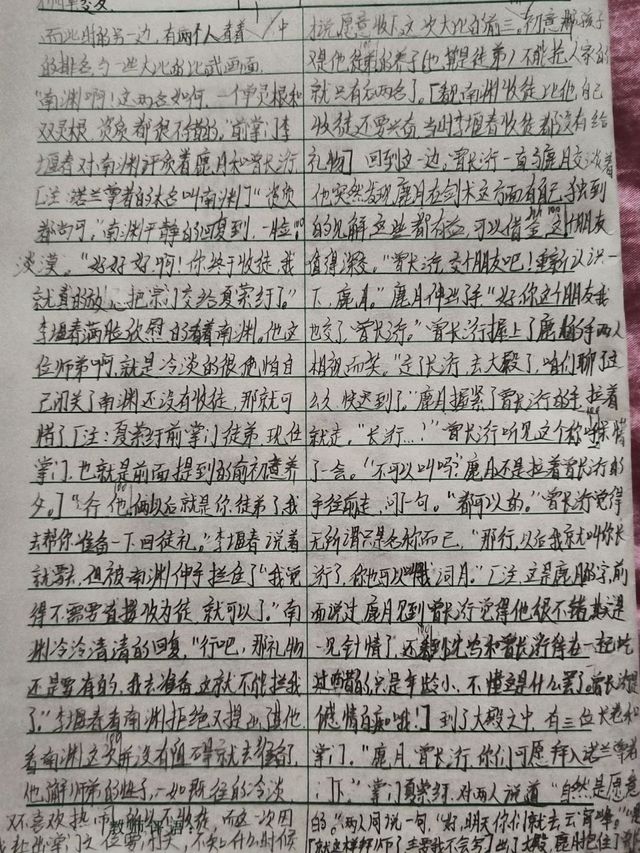 而此时的另一边,有两个人看着
的排名与一些大比的比武画面.
"南渊啊!这两名如何,一个单灵根和
双灵根,资质都很不错的."前掌门李
堰春对南渊评价着鹿月和曾长泞
[注:诺兰尊者的本名叫南渊]"资质
都尚可."南渊平静的回复到,一脸
淡漠."好好好啊!你终于收徒,我
就真的放心把宗门交给夏萦纾了."
李堰春满脸欣慰的看着南渊.他这
位师弟啊,就是冷淡的很,他怕自
己闭关了南渊还没有收徒,那就可
惜了[注:夏萦纾前掌门徒弟,现任
掌门.也就是前面提到的前初意养
父.]"行,他俩以后就是你徒弟了,我
去帮你准备一下回徒礼."李堰春说着
就要走,但被南渊伸手拦住了"我觉
得不需要直接收为徒,就可以了."南
渊冷冷清清的回复,"行吧,那礼物
还是要有的,我去准备,这就不能拦我
了."李堰春看南渊拒绝又提出
看南渊这次并没有阻
他了解师弟的性子,一如既往的冷淡
不喜欢热闹,所以不收徒,而这一次因
教师评语:
说愿意收下这次大比的前三,初意
是他徒弟的养子(也算是徒弟)不能抢人家的
就只有后两名了.
收徒还要兴奋,当时李堰春收徒都没有给
礼物]回到这一边,曾长泞一直与鹿月交谈着
他突然发现鹿月在剑术这方面有自己独到
的见解,这些都有益,可以借鉴,这个朋友
值得深交."曾长泞,交个朋友吧!重新认识一
下,鹿月."鹿月伸出了手"好,你这个朋友我
也交了,曾长泞."曾长泞握上了鹿月的手,两人
相视而笑."走了长泞,去大殿了,咱们聊了这
么久,快迟到了."鹿月握紧了曾长泞的手,拉着
就走,"长泞…?"曾长泞听见这个称呼
了一会."不可以叫吗?"鹿月不是拉着曾长泞的
手往前走,问了句."都可以的."曾长泞觉得
无所谓,只是名称而已,"那行,以后我就叫你长
泞了,你也可以叫我'词月'."[注,这是鹿月的字,前
面说过鹿月见到曾长泞觉得他很不错,算是
一见钟情了,
过两世的只是年龄小,不懂这是什么罢了.曾长泞
情百科哦!]到了大殿之中,有三位长老和
掌门."鹿月,曾长泞,你们可愿拜入诺兰尊者
门下."掌门夏萦纾,对两人说道"自然是愿意
的."两人同说一句,"好,明天你们就去云
出了大殿,鹿月把住了